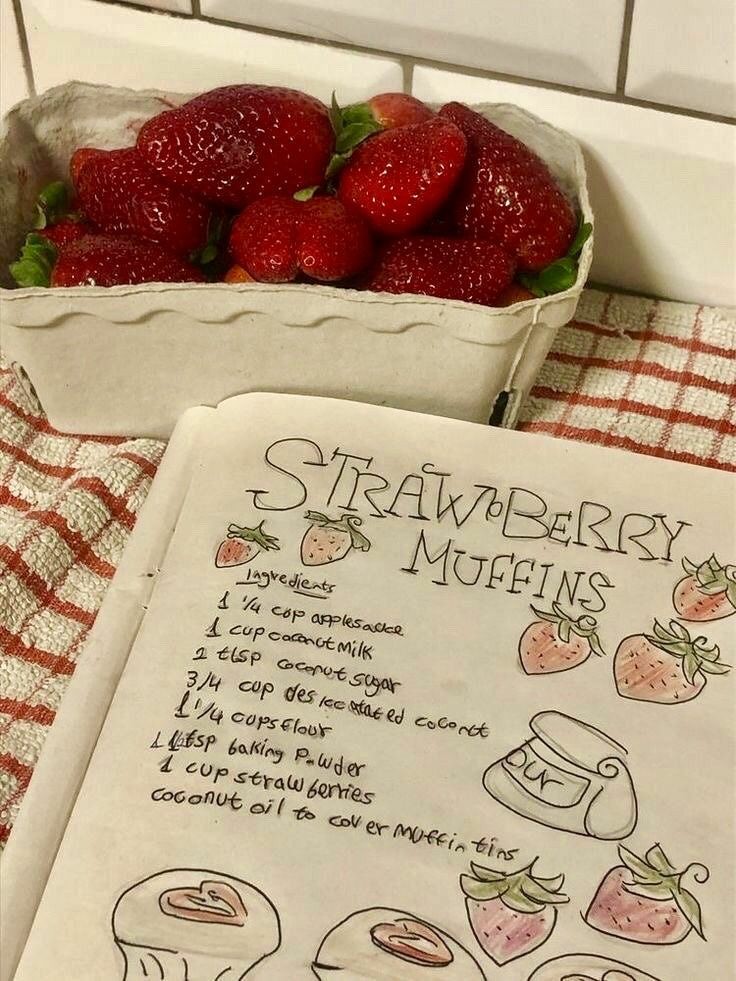 STRAWBERRY
MUFFINS
Ingredients
1 1/4 cup applesauce
1 cup coconut milk
2 tbsp coconut sugar
3/4 cup desiccated coconut
1 1/4 cups flour
1 tsp baking powder
1 cup strawberries
coconut oil to cover muffin tins
our